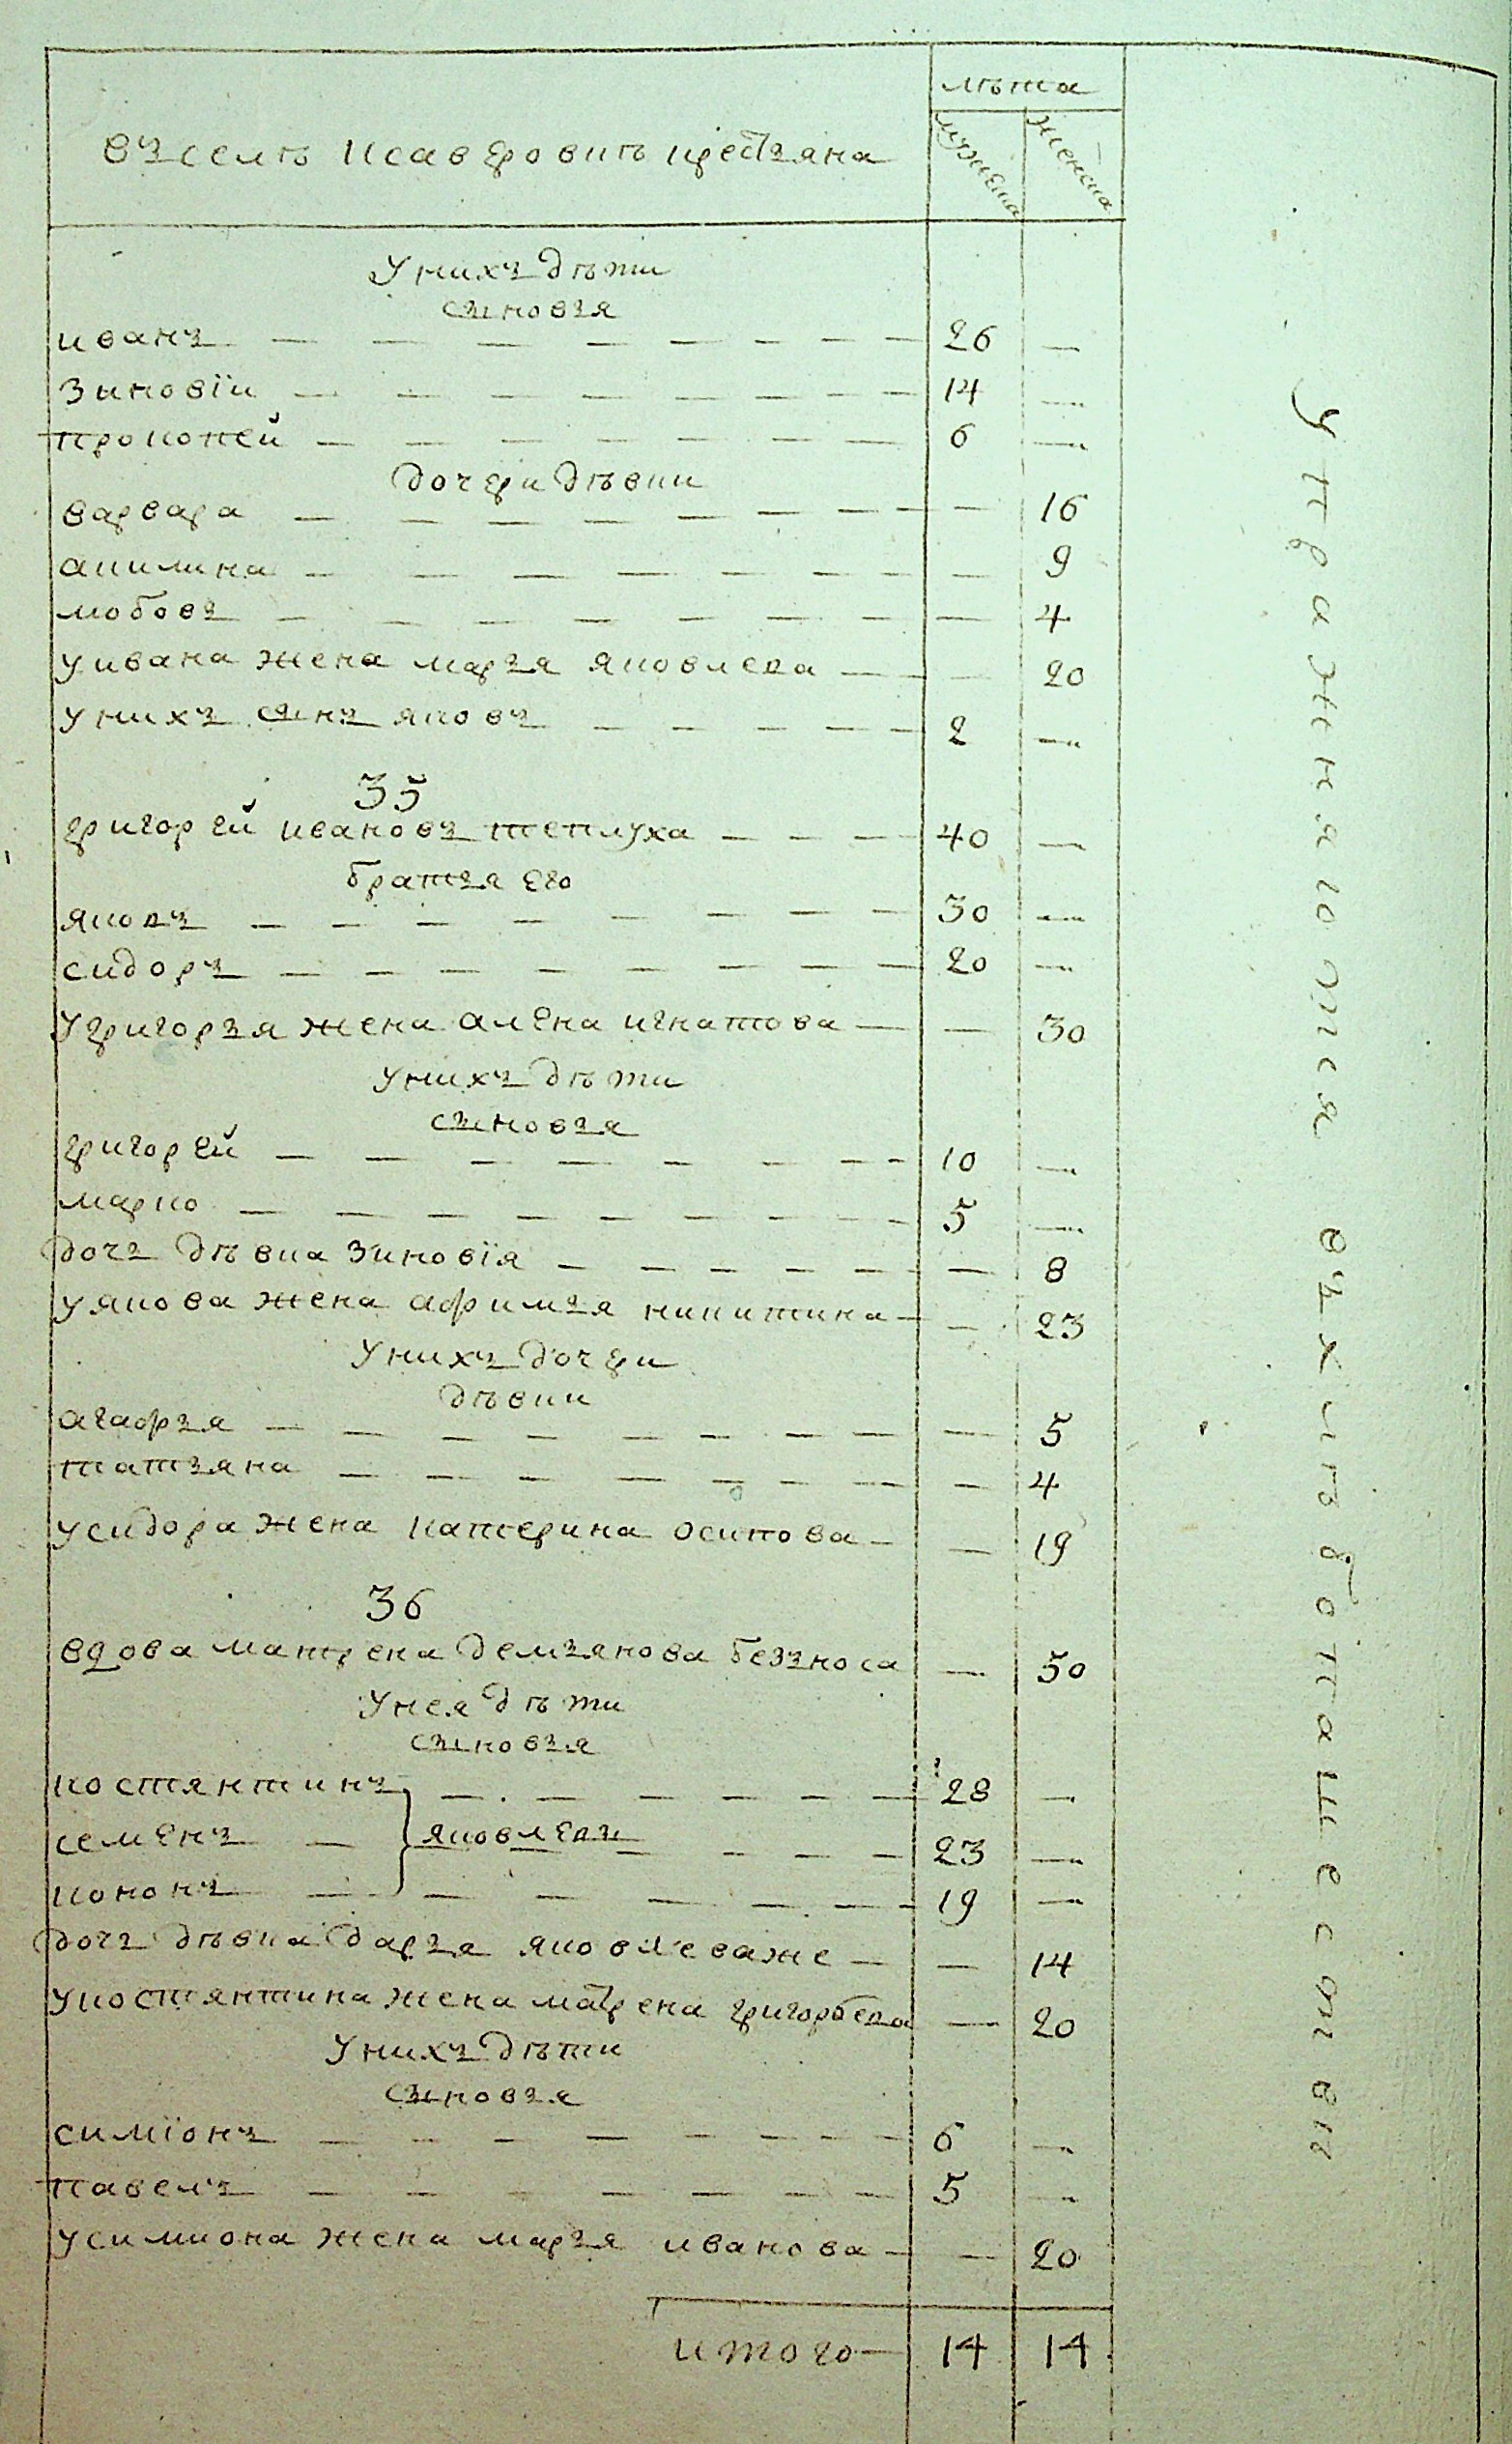 въселѣ Ксаверовкѣ крестьяна
лѣта
мужеска
женска
Унихъ дѣти
сыновья
иванъ 26 —
Зиновїи 14 —
прокопей 6 —
дочери дѣвки
варвара — 16
акилина — 9
любовь — 4
уивана жена марья яковлева — 20
унихъ сынъ яковъ 2 —
35
григорей ивановъ теплуха 40 —
братья его
яковъ 30 —
сидоръ 20 —
угригорья жена алена игнатова — 30
унихъ дѣти
сыновья
григорей 10 —
марко 5 —
дочь дѣвка Зиновїя — 8
уякова жена афимья никитина — 23
унихъ дочери
дѣвки
агафья — 5
татьяна — 4
усидора жена катерина осипова — 19
36
вдова матрена демьянова безъноса — 50
унея дѣти
сыновья
костянтинъ 28 —
семенъ яковлевы 23 —
кононъ 19 —
дочь дѣвка дарья яковлеваже — 14
укостянтина жена матрена григорьева — 20
унихъ дѣти
сыновья
симїонъ 6 —
павелъ 5 —
усимиона жена марья иванова — 20
итого 14 14
Упражняются въхлѣбопашествѣ